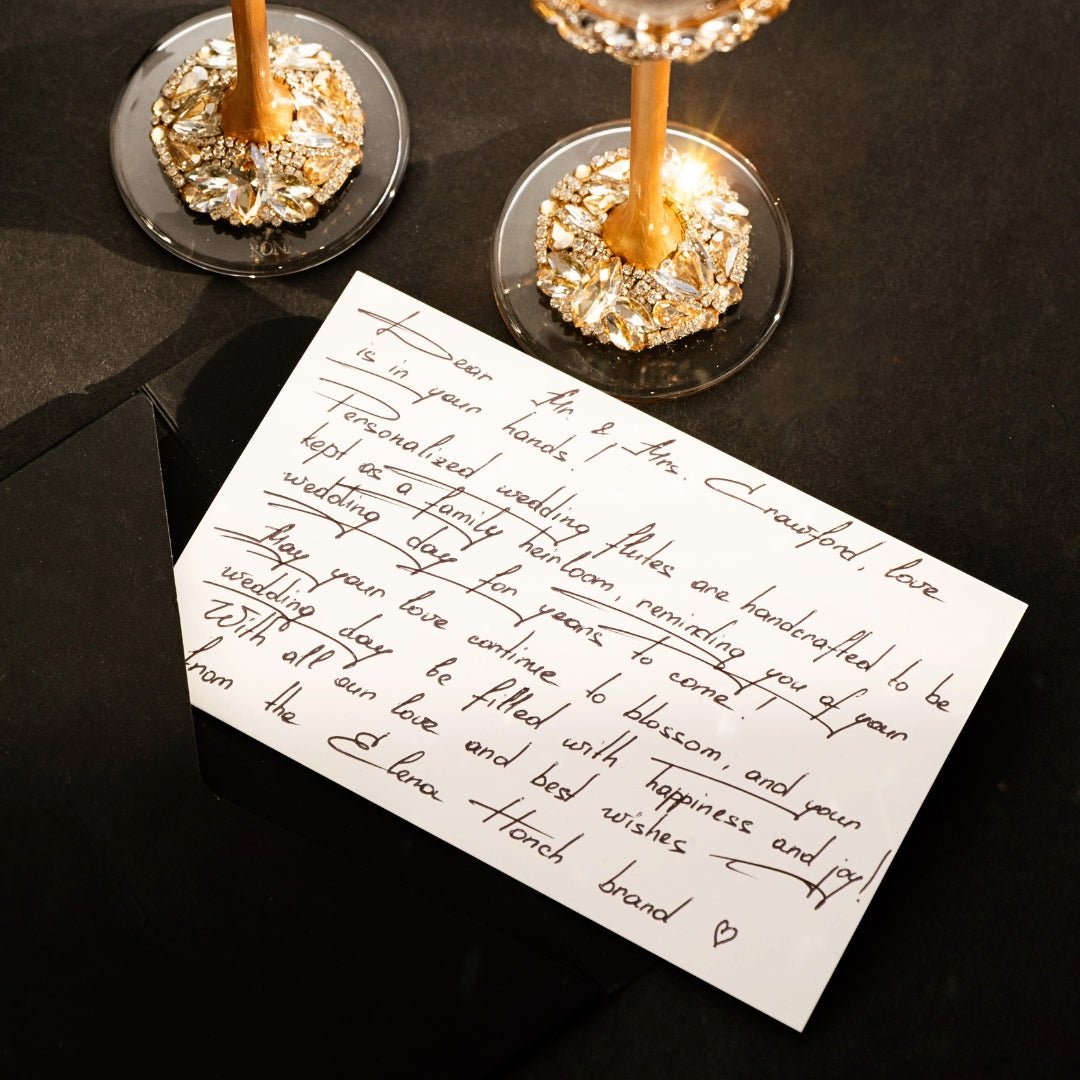 Dear Mr. & Mrs. Crawford, love
is in your hands!
Personalized wedding flutes are handcrafted to be
kept as a family heirloom, reminding you of your
wedding day for years to come.
May your love continue to blossom, and your
wedding day be filled with happiness and joy!
With all our love and best wishes
from the Elena Honch brand ♡